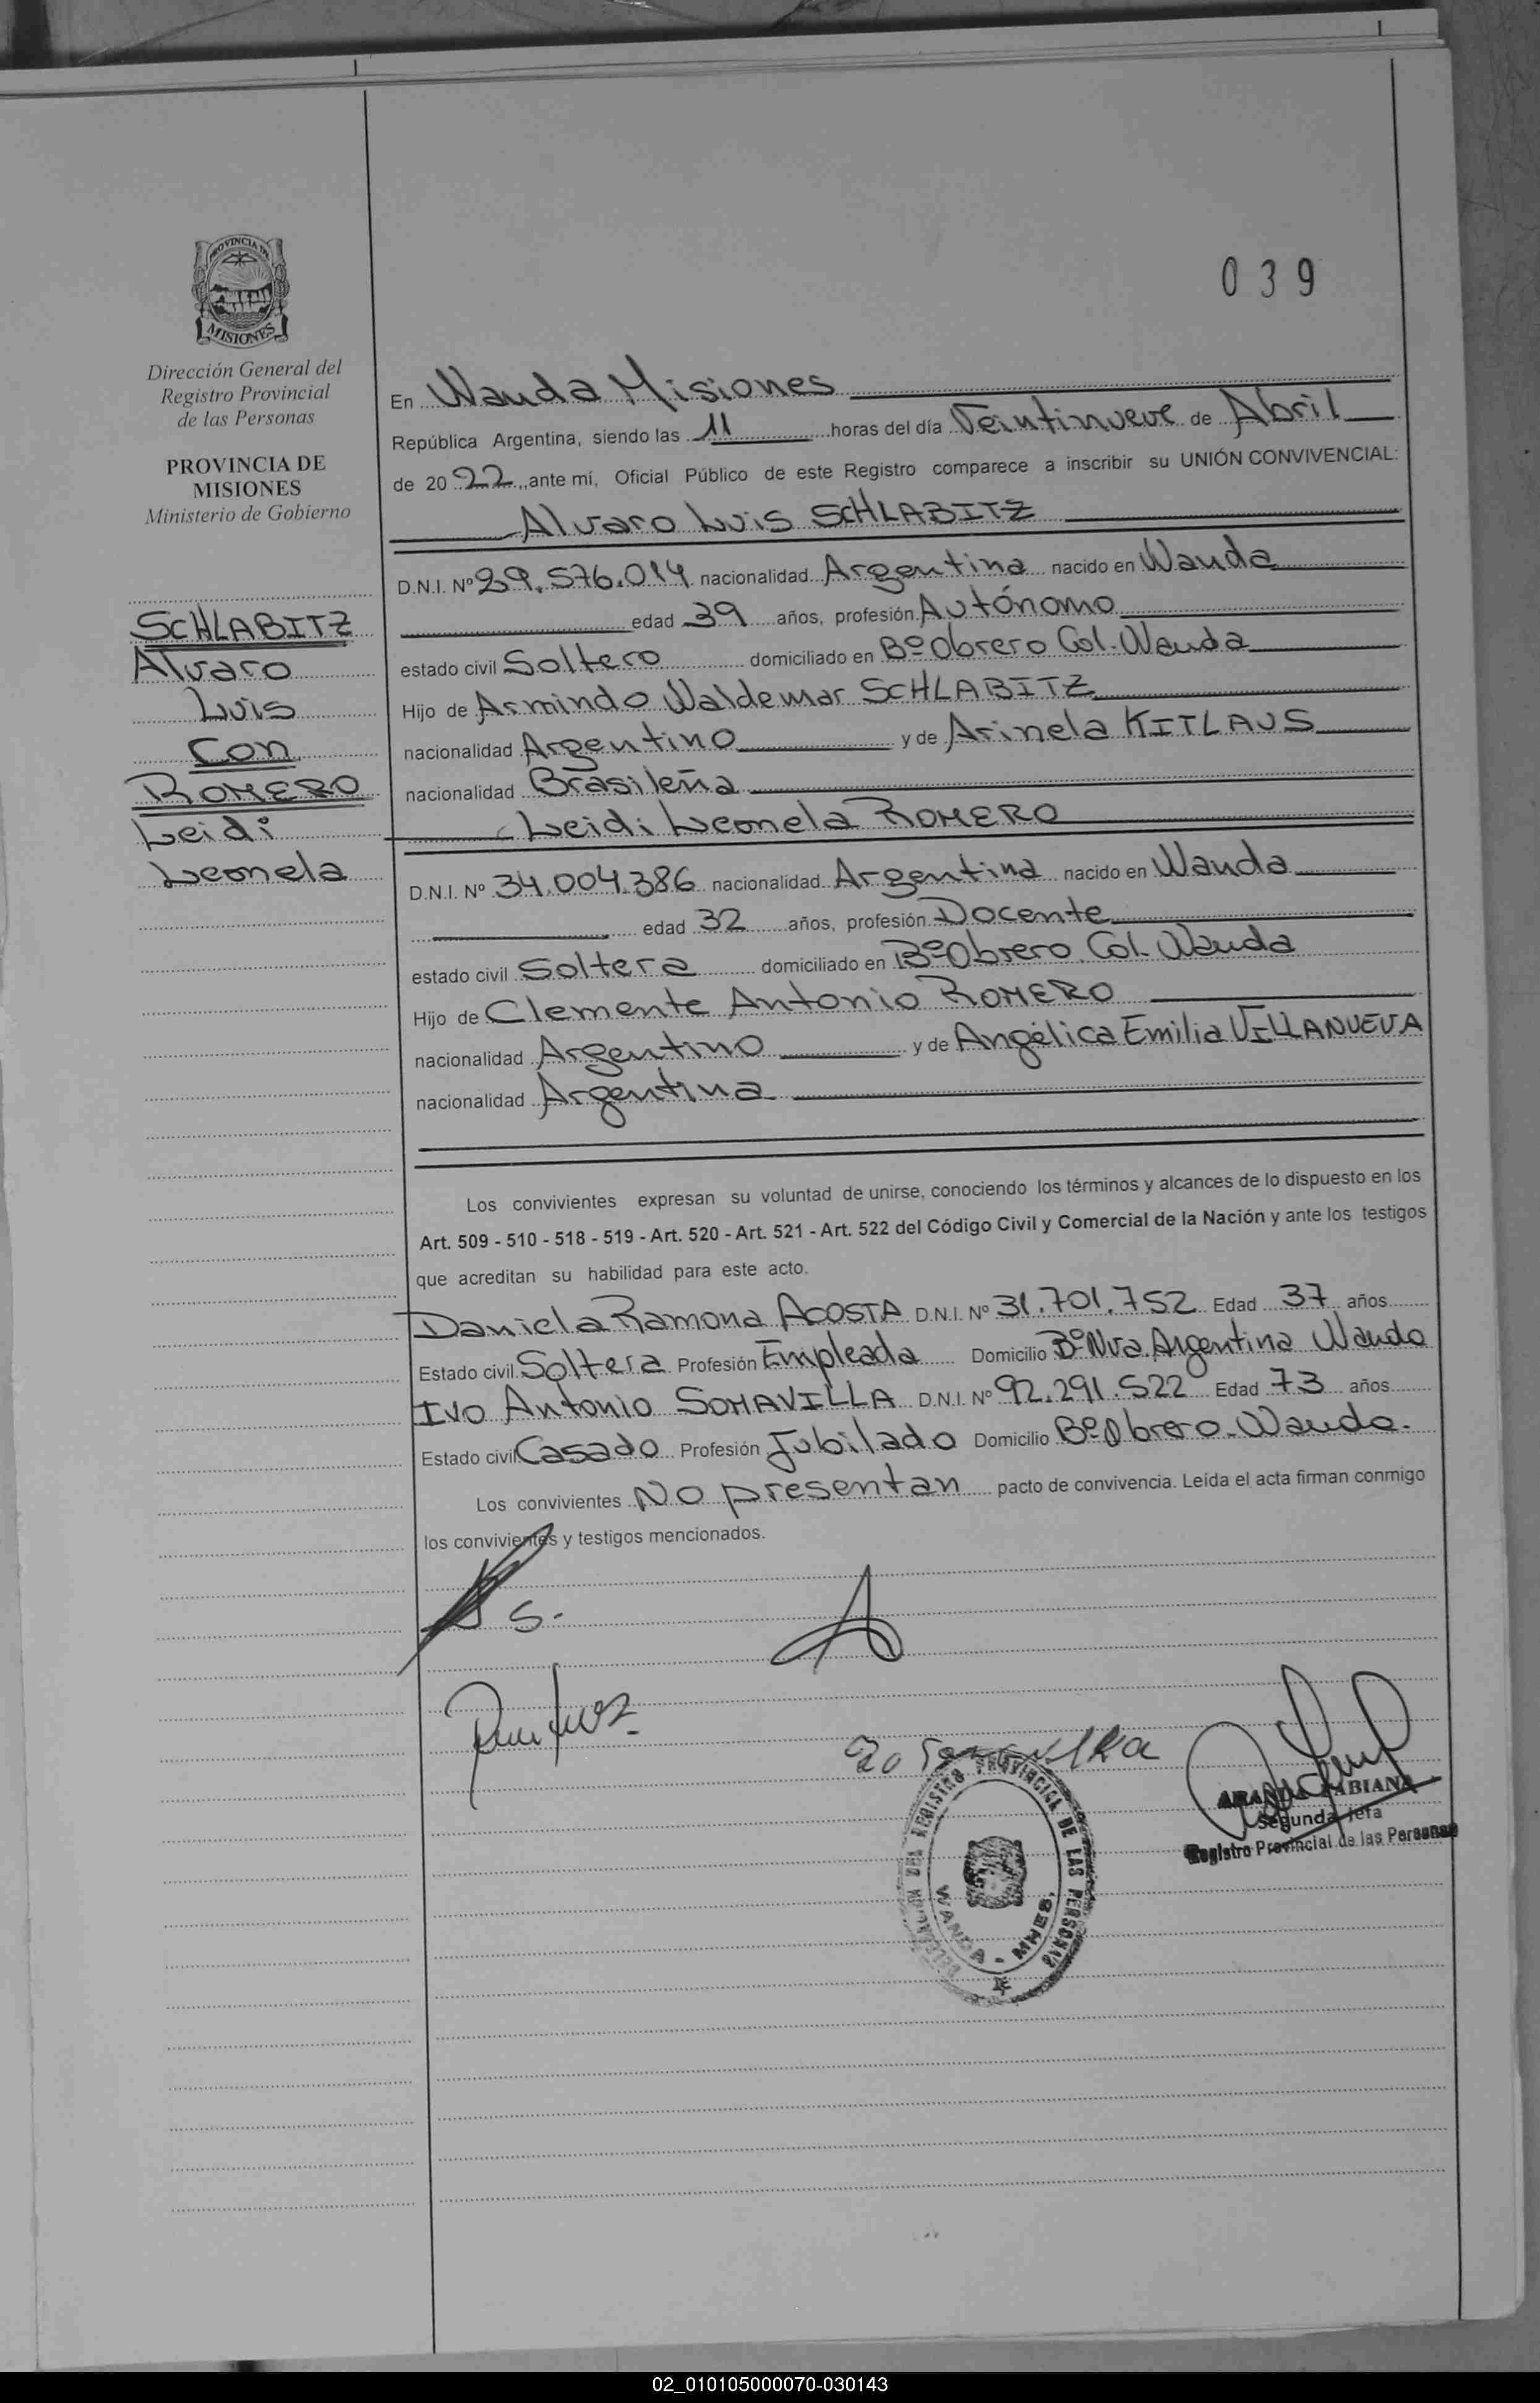 039
PROVINCIA DE
MISIONES
Dirección General del
Registro Provincial
de las Personas
PROVINCIA DE
MISIONES
Ministerio de Gobierno
SCHLABITZ
Alvaro
Luis
Con
ROMERO
Leidi
Leonela
En Wanda Misiones
República Argentina, siendo las 11 horas del día Veintinueve de Abril
de 2022, ante mí, Oficial Público de este Registro comparece a inscribir su UNIÓN CONVIVENCIAL:
Alvaro Luis SCHLABITZ
D.N.I. Nº 29.576.014 nacionalidad Argentina nacido en Wanda
edad 39 años, profesión Autónomo
estado civil Soltero domiciliado en Bº Obrero Col. Wanda
Hijo de Armindo Waldemar SCHLABITZ
nacionalidad Argentino y de Arinela KITLAUS
nacionalidad Brasileña
Leidi Leonela ROMERO
D.N.I. Nº 34.004.386 nacionalidad Argentina nacido en Wanda
edad 32 años, profesión Docente
estado civil Soltera domiciliado en Bº Obrero Col. Wanda
Hijo de Clemente Antonio ROMERO
nacionalidad Argentino y de Angélica Emilia VILLANUEVA
nacionalidad Argentina
Los convivientes expresan su voluntad de unirse, conociendo los términos y alcances de lo dispuesto en los
Art. 509 - 510 - 518 - 519 - Art. 520 - Art. 521 - Art. 522 del Código Civil y Comercial de la Nación y ante los testigos
que acreditan su habilidad para este acto.
Daniela Ramona ACOSTA D.N.I. Nº 31.701.752 Edad 37 años
Estado civil Soltera Profesión Empleada Domicilio Bº Nva. Argentina Wanda
Ivo Antonio SOMAVILLA D.N.I. Nº 92.291.522 Edad 73 años
Estado civil Casado Profesión Jubilado Domicilio Bº Obrero - Wanda.
Los convivientes No presentan pacto de convivencia. Leída el acta firman conmigo
los convivientes y testigos mencionados.
FABIANA
Segunda Jefa
Registro Provincial de las Personas
DELEGACIÓN DEL REGISTRO PROVINCIAL DE LAS PERSONAS
WANDA - MNES.
02_010105000070-030143